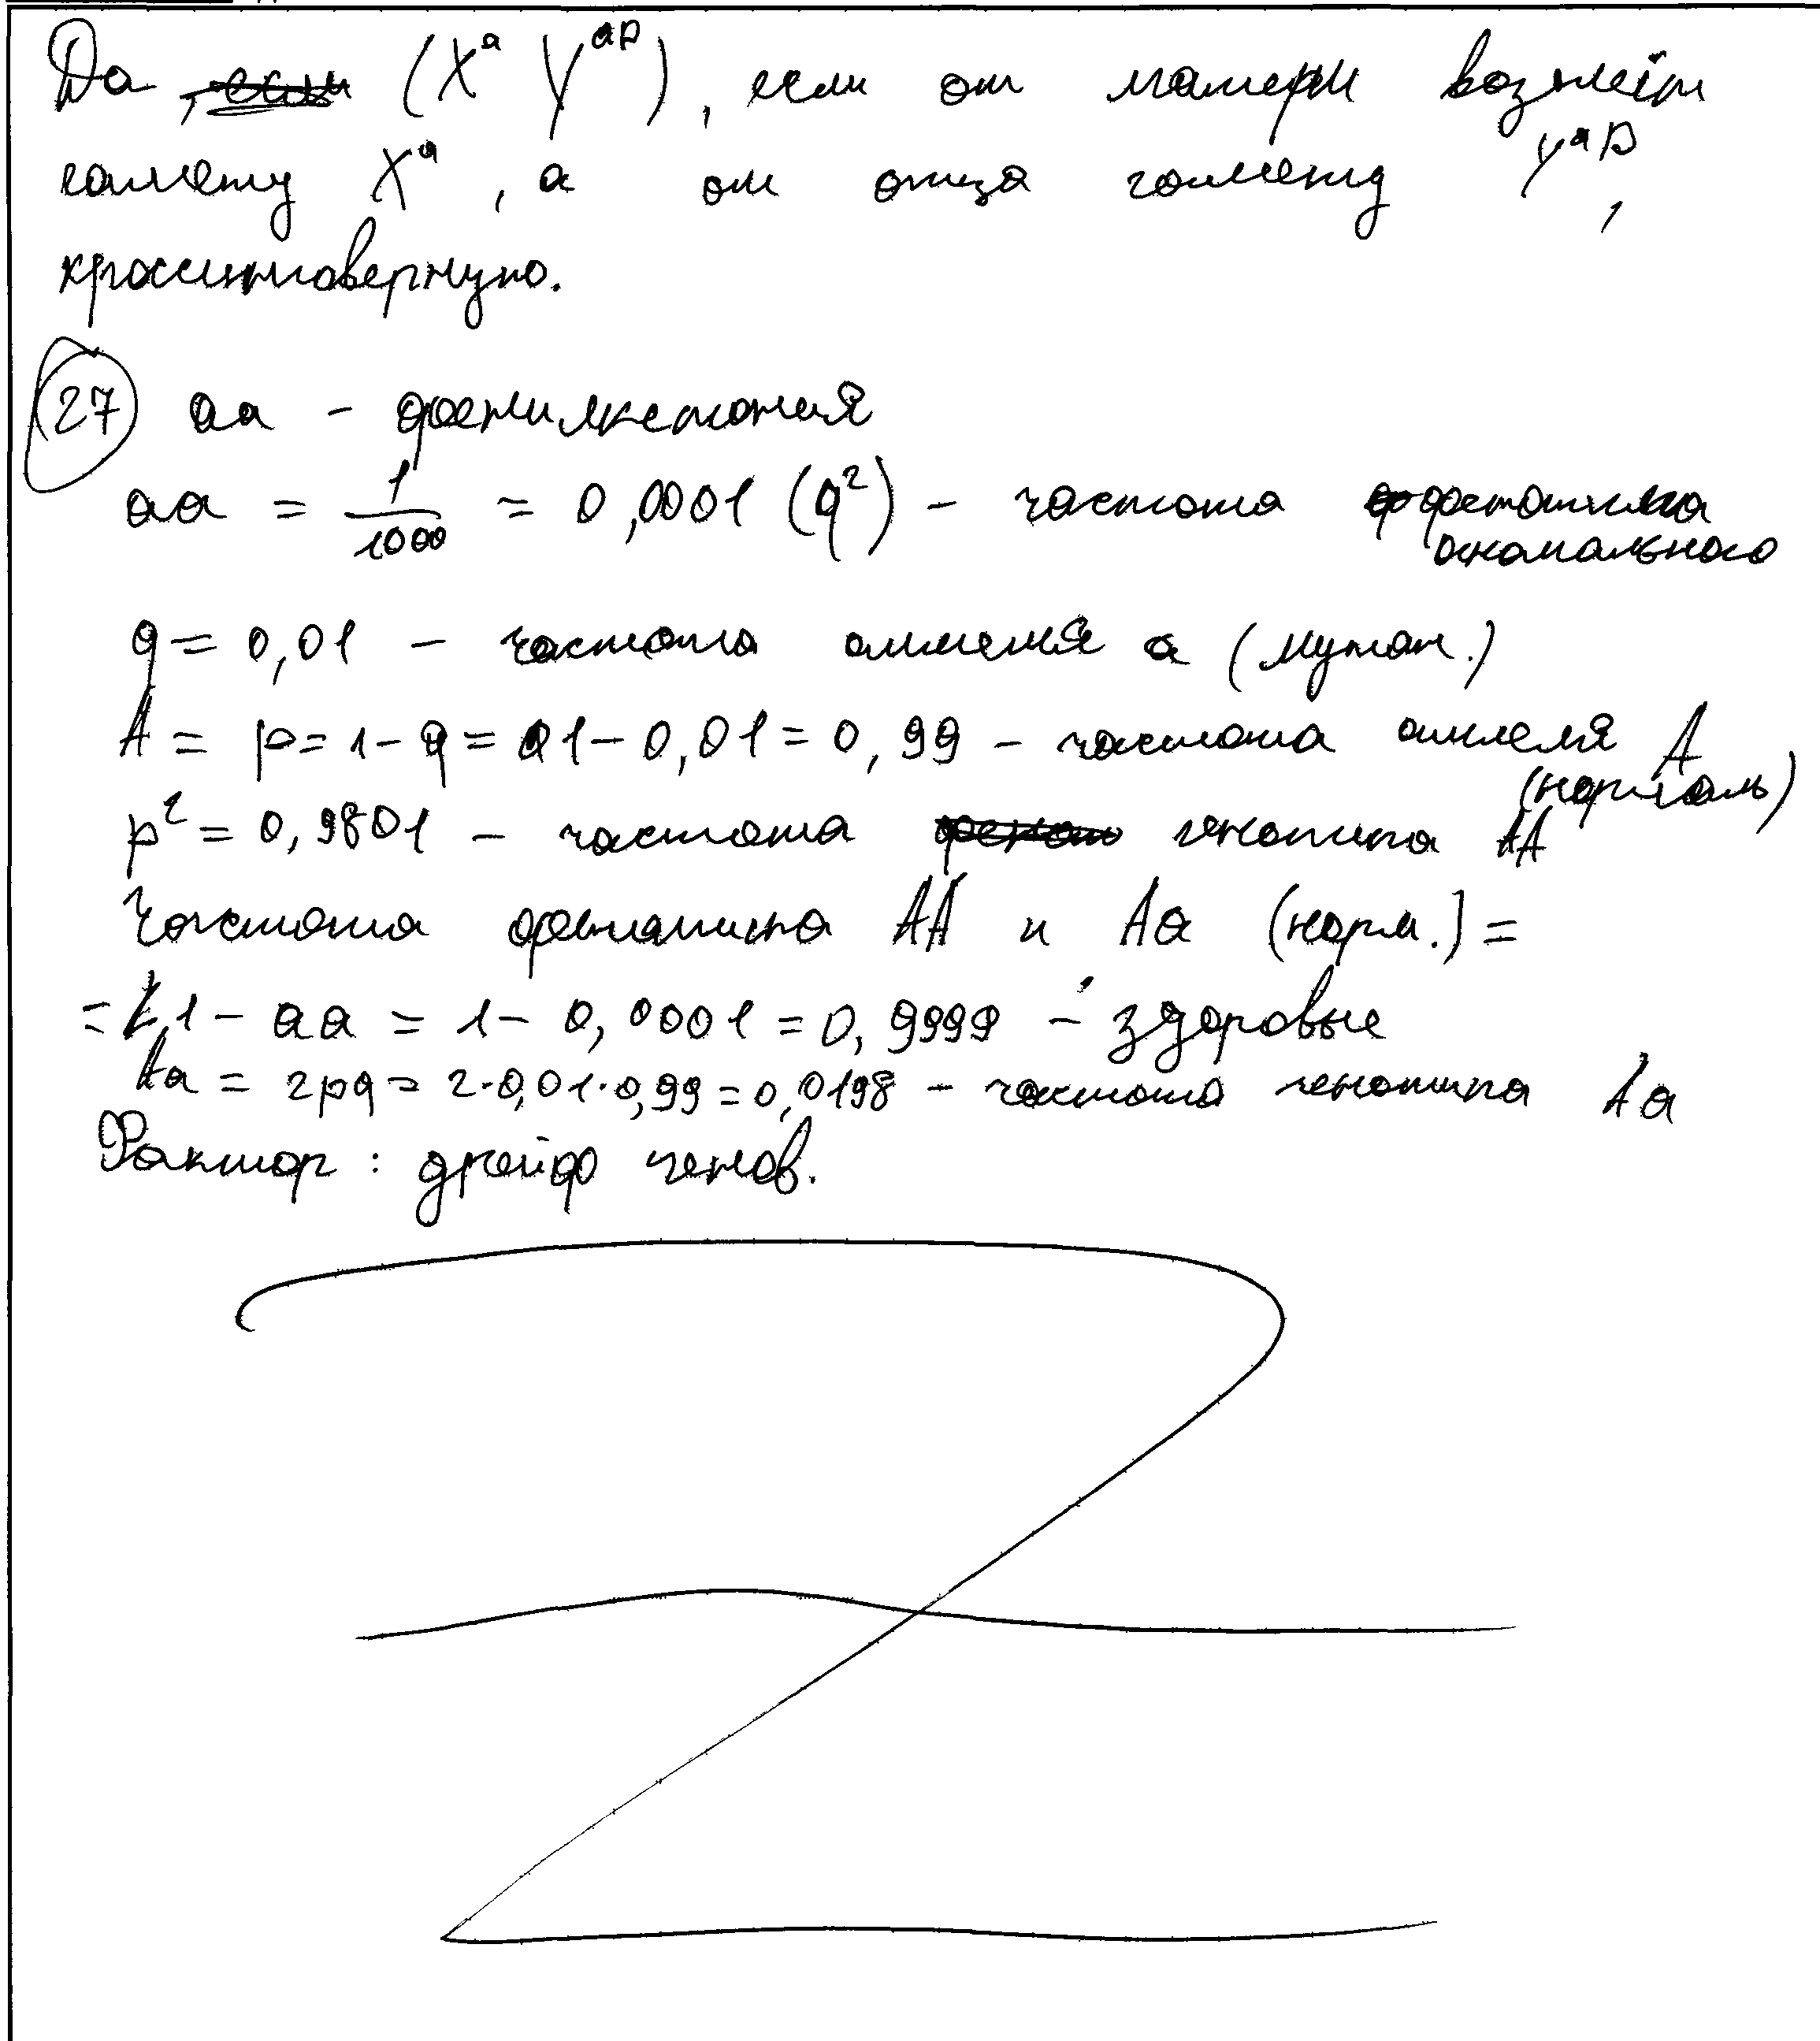 Да, если (Xᵃ Yᵃᴰ), если от матери возмёт
гамету Xᵃ, а от отца гамету Yᵃᴰ,
кроссинговерную.
27 аа - фенилкетонурия
аа = 1/1000 = 0,0001 (q²) - частота фенотипа
аномального
q = 0,01 - частота аллеля а (мутан.)
А = p = 1 - q = 1 - 0,01 = 0,99 - частота аллеля А
(нормаль)
p² = 0,9801 - частота генотипа АА
Частота фенотипа АА и Аа (норм.) =
= 1 - аа = 1 - 0,0001 = 0,9999 - здоровые
Аа = 2pq = 2·0,01·0,99 = 0,0198 - частота генотипа Аа
Фактор: дрейф генов.